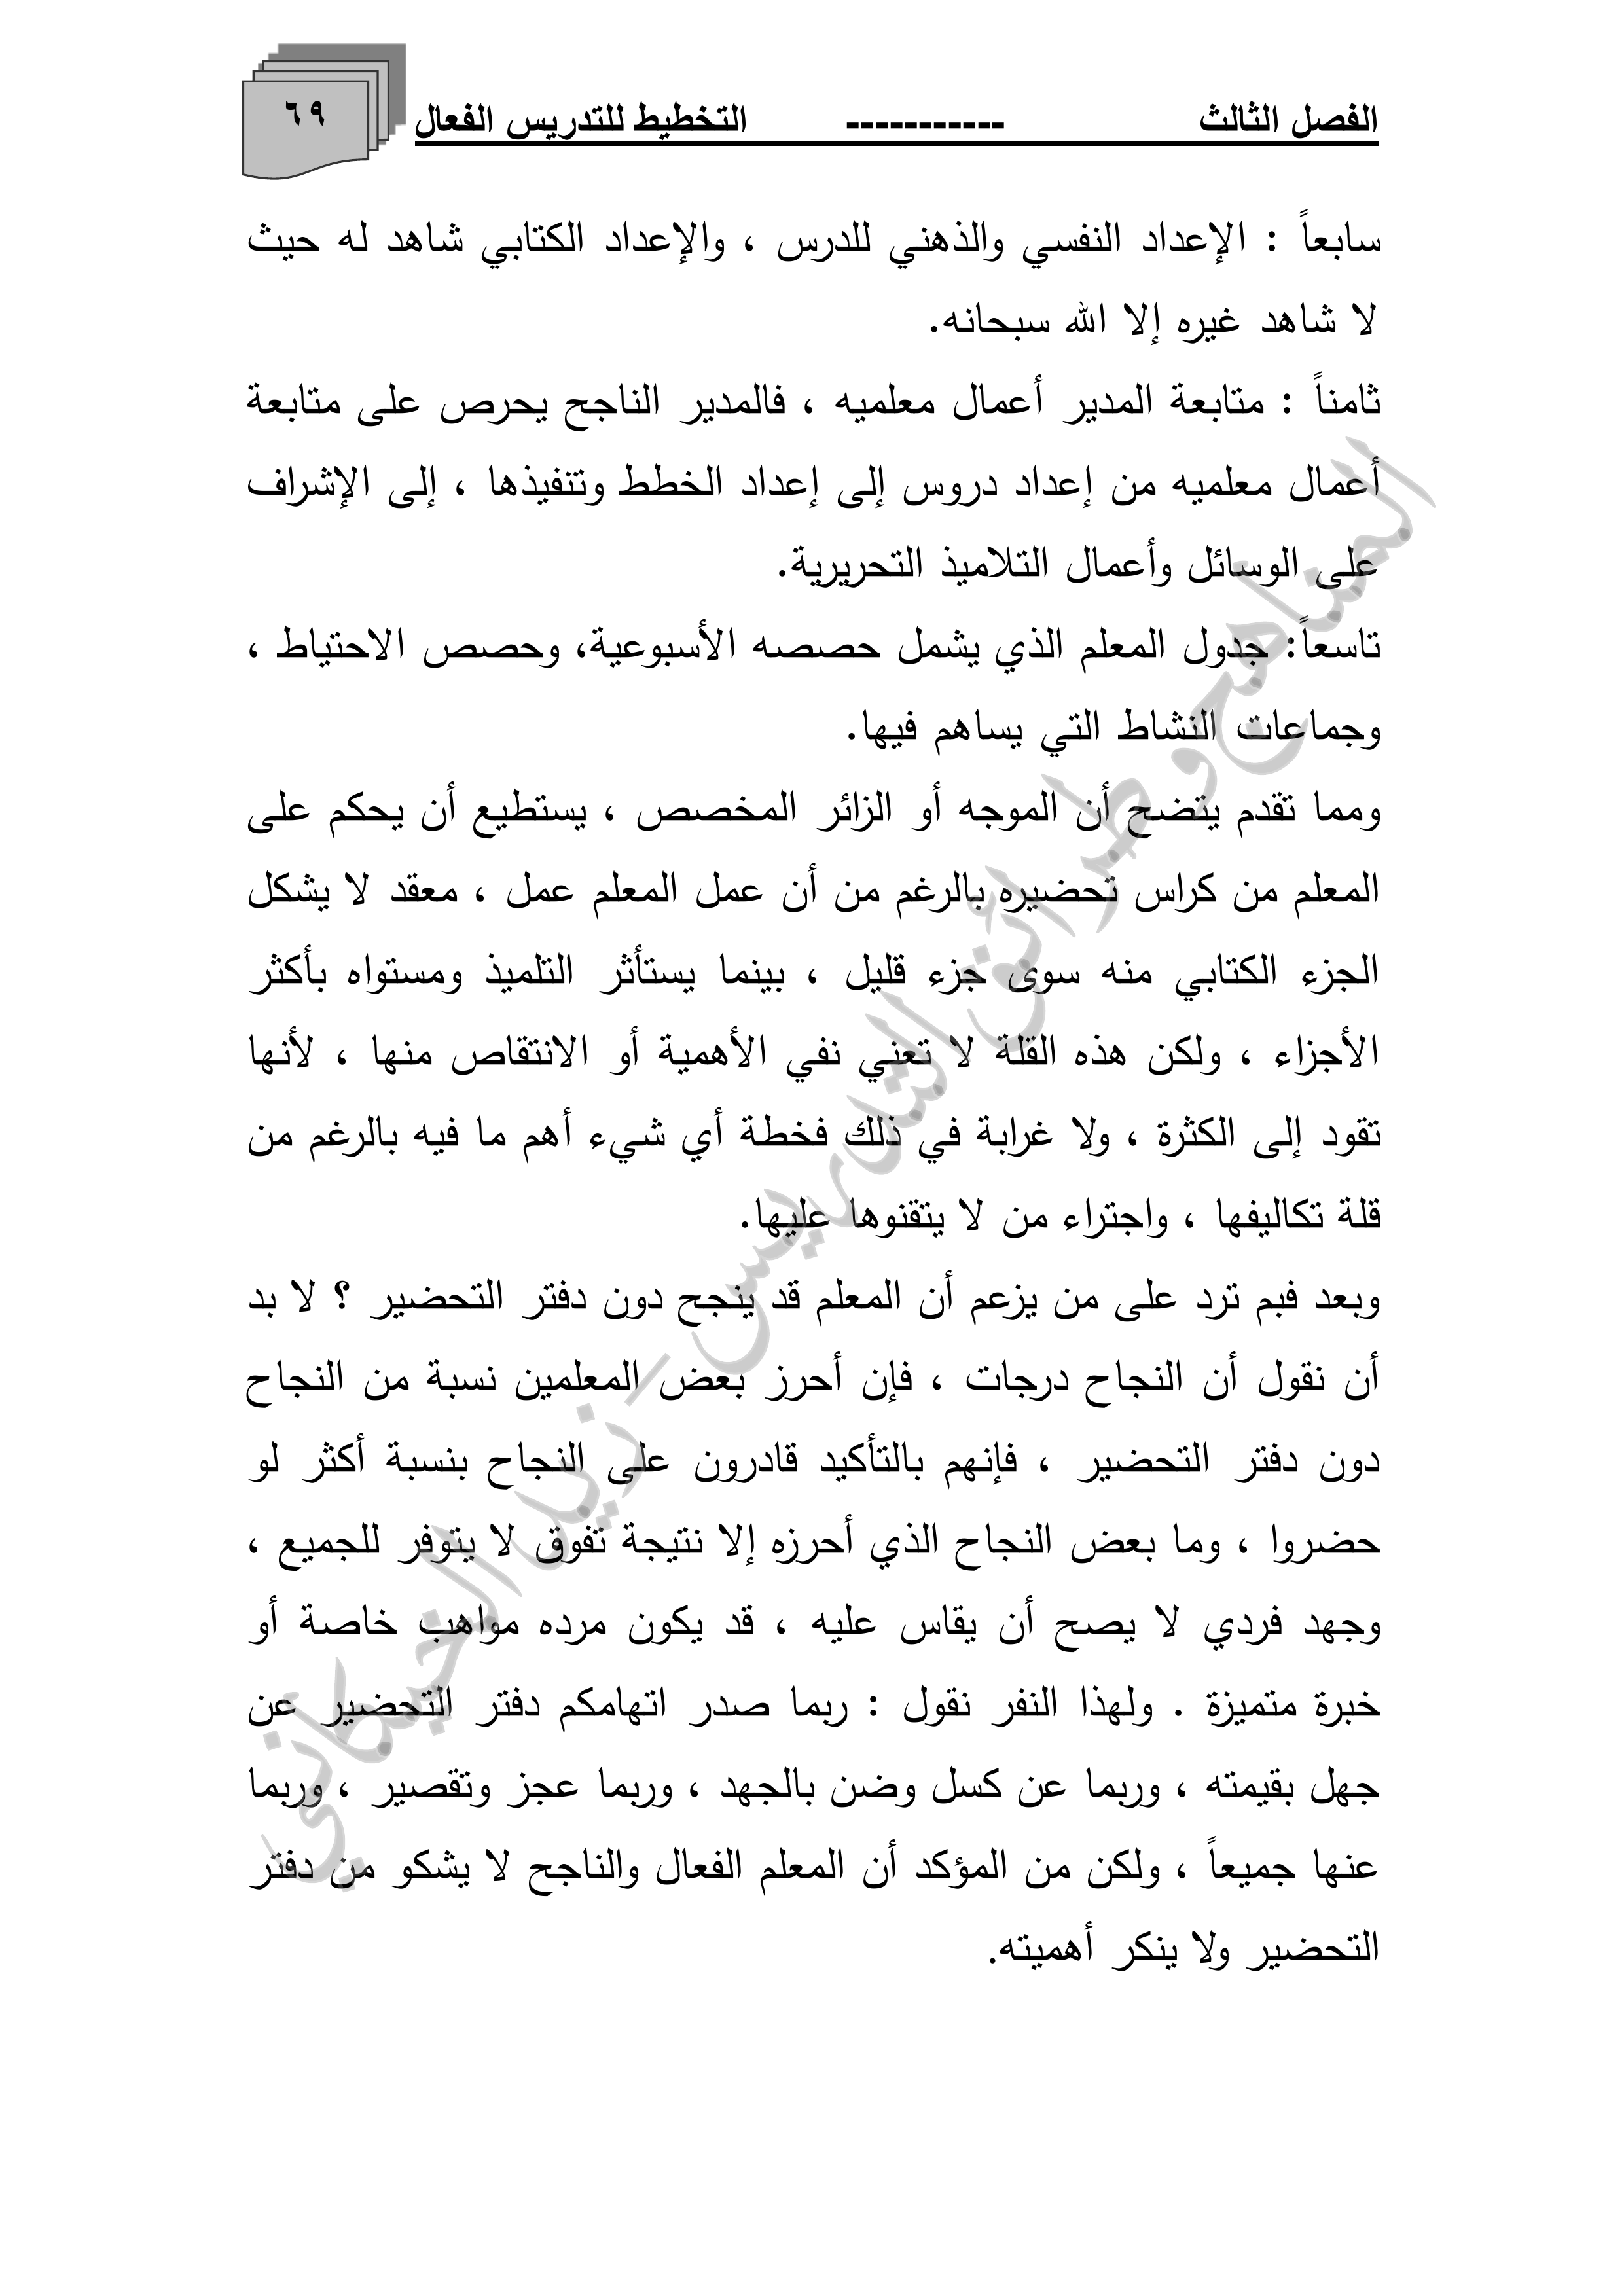 الفصل الثالث ----------- التخطيط للتدريس الفعال ٦٩
سابعاً : الإعداد النفسي والذهني للدرس ، والإعداد الكتابي شاهد له حيث
لا شاهد غيره إلا الله سبحانه.
ثامناً : متابعة المدير أعمال معلميه ، فالمدير الناجح يحرص على متابعة
أعمال معلميه من إعداد دروس إلى إعداد الخطط وتنفيذها ، إلى الإشراف
على الوسائل وأعمال التلاميذ التحريرية.
تاسعاً: جدول المعلم الذي يشمل حصصه الأسبوعية، وحصص الاحتياط ،
وجماعات النشاط التي يساهم فيها.
ومما تقدم يتضح أن الموجه أو الزائر المخصص ، يستطيع أن يحكم على
المعلم من كراس تحضيره بالرغم من أن عمل المعلم عمل ، معقد لا يشكل
الجزء الكتابي منه سوى جزء قليل ، بينما يستأثر التلميذ ومستواه بأكثر
الأجزاء ، ولكن هذه القلة لا تعني نفي الأهمية أو الانتقاص منها ، لأنها
تقود إلى الكثرة ، ولا غرابة في ذلك فخطة أي شيء أهم ما فيه بالرغم من
قلة تكاليفها ، واجتراء من لا يتقنوها عليها.
وبعد فبم ترد على من يزعم أن المعلم قد ينجح دون دفتر التحضير ؟ لا بد
أن نقول أن النجاح درجات ، فإن أحرز بعض المعلمين نسبة من النجاح
دون دفتر التحضير ، فإنهم بالتأكيد قادرون على النجاح بنسبة أكثر لو
حضروا ، وما بعض النجاح الذي أحرزه إلا نتيجة تفوق لا يتوفر للجميع ،
وجهد فردي لا يصح أن يقاس عليه ، قد يكون مرده مواهب خاصة أو
خبرة متميزة . ولهذا النفر نقول : ربما صدر اتهامكم دفتر التحضير عن
جهل بقيمته ، وربما عن كسل وضن بالجهد ، وربما عجز وتقصير ، وربما
عنها جميعاً ، ولكن من المؤكد أن المعلم الفعال والناجح لا يشكو من دفتر
التحضير ولا ينكر أهميته.
المناهج وطرائق التدريس – زيد الخيكاني